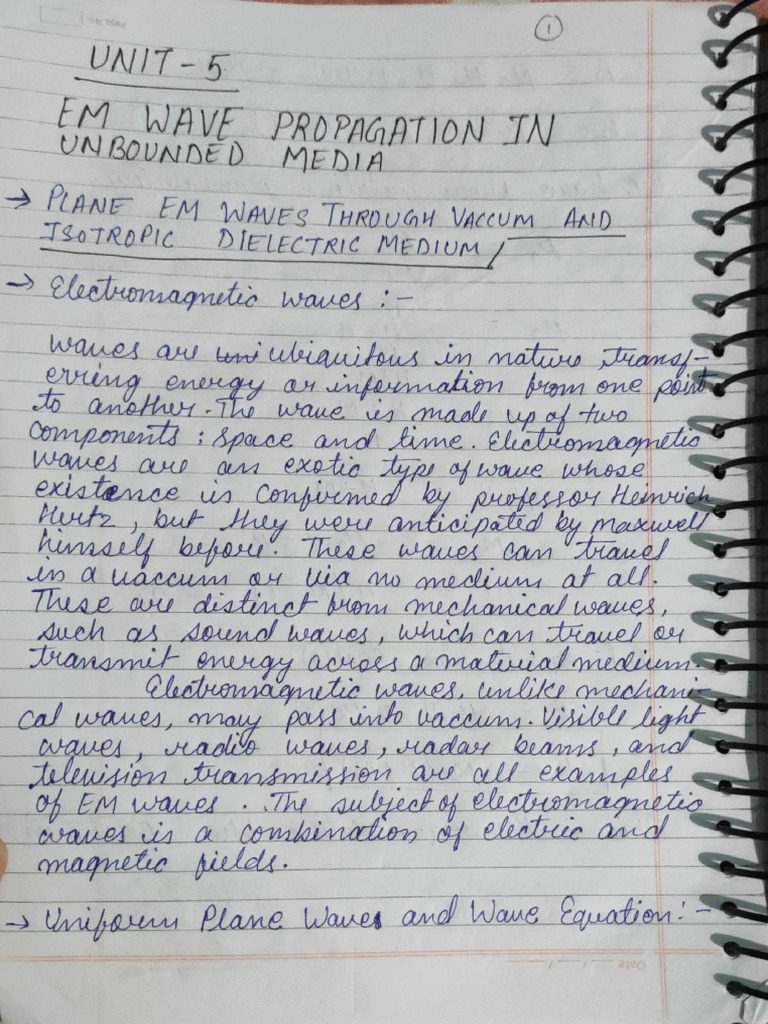 Page No.
①
UNIT - 5
EM WAVE PROPAGATION IN
UNBOUNDED MEDIA
→ PLANE EM WAVES THROUGH VACCUM AND
ISOTROPIC DIELECTRIC MEDIUM
→ Electromagnetic waves :-
waves are ubiquitous in nature, transf-
erring energy or information from one point
to another. The wave is made up of two
components : space and time. Electromagnetic
waves are an exotic type of wave whose
existence is confirmed by professor Heinrich
Hertz, but they were anticipated by maxwell
himself before. These waves can travel
in a vaccum or via no medium at all.
These are distinct from mechanical waves,
such as sound waves, which can travel or
transmit energy across a material medium.
Electromagnetic waves, unlike mechani-
cal waves, may pass into vaccum. Visible light
waves, radio waves, radar beams, and
television transmission are all examples
of EM waves. The subject of electromagnetic
waves is a combination of electric and
magnetic fields.
→ Uniform Plane Waves and Wave Equation :-
Date